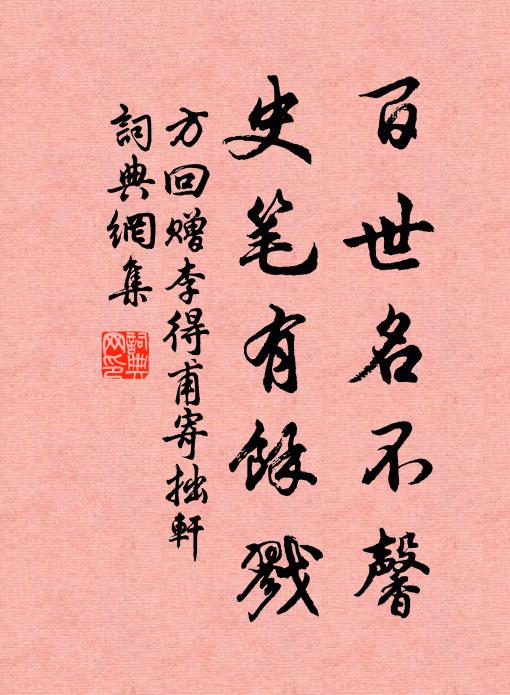 百世名不馨
史笔有餘戮
方回赠李得甫寄拙軒
詞典網集
詞典網印